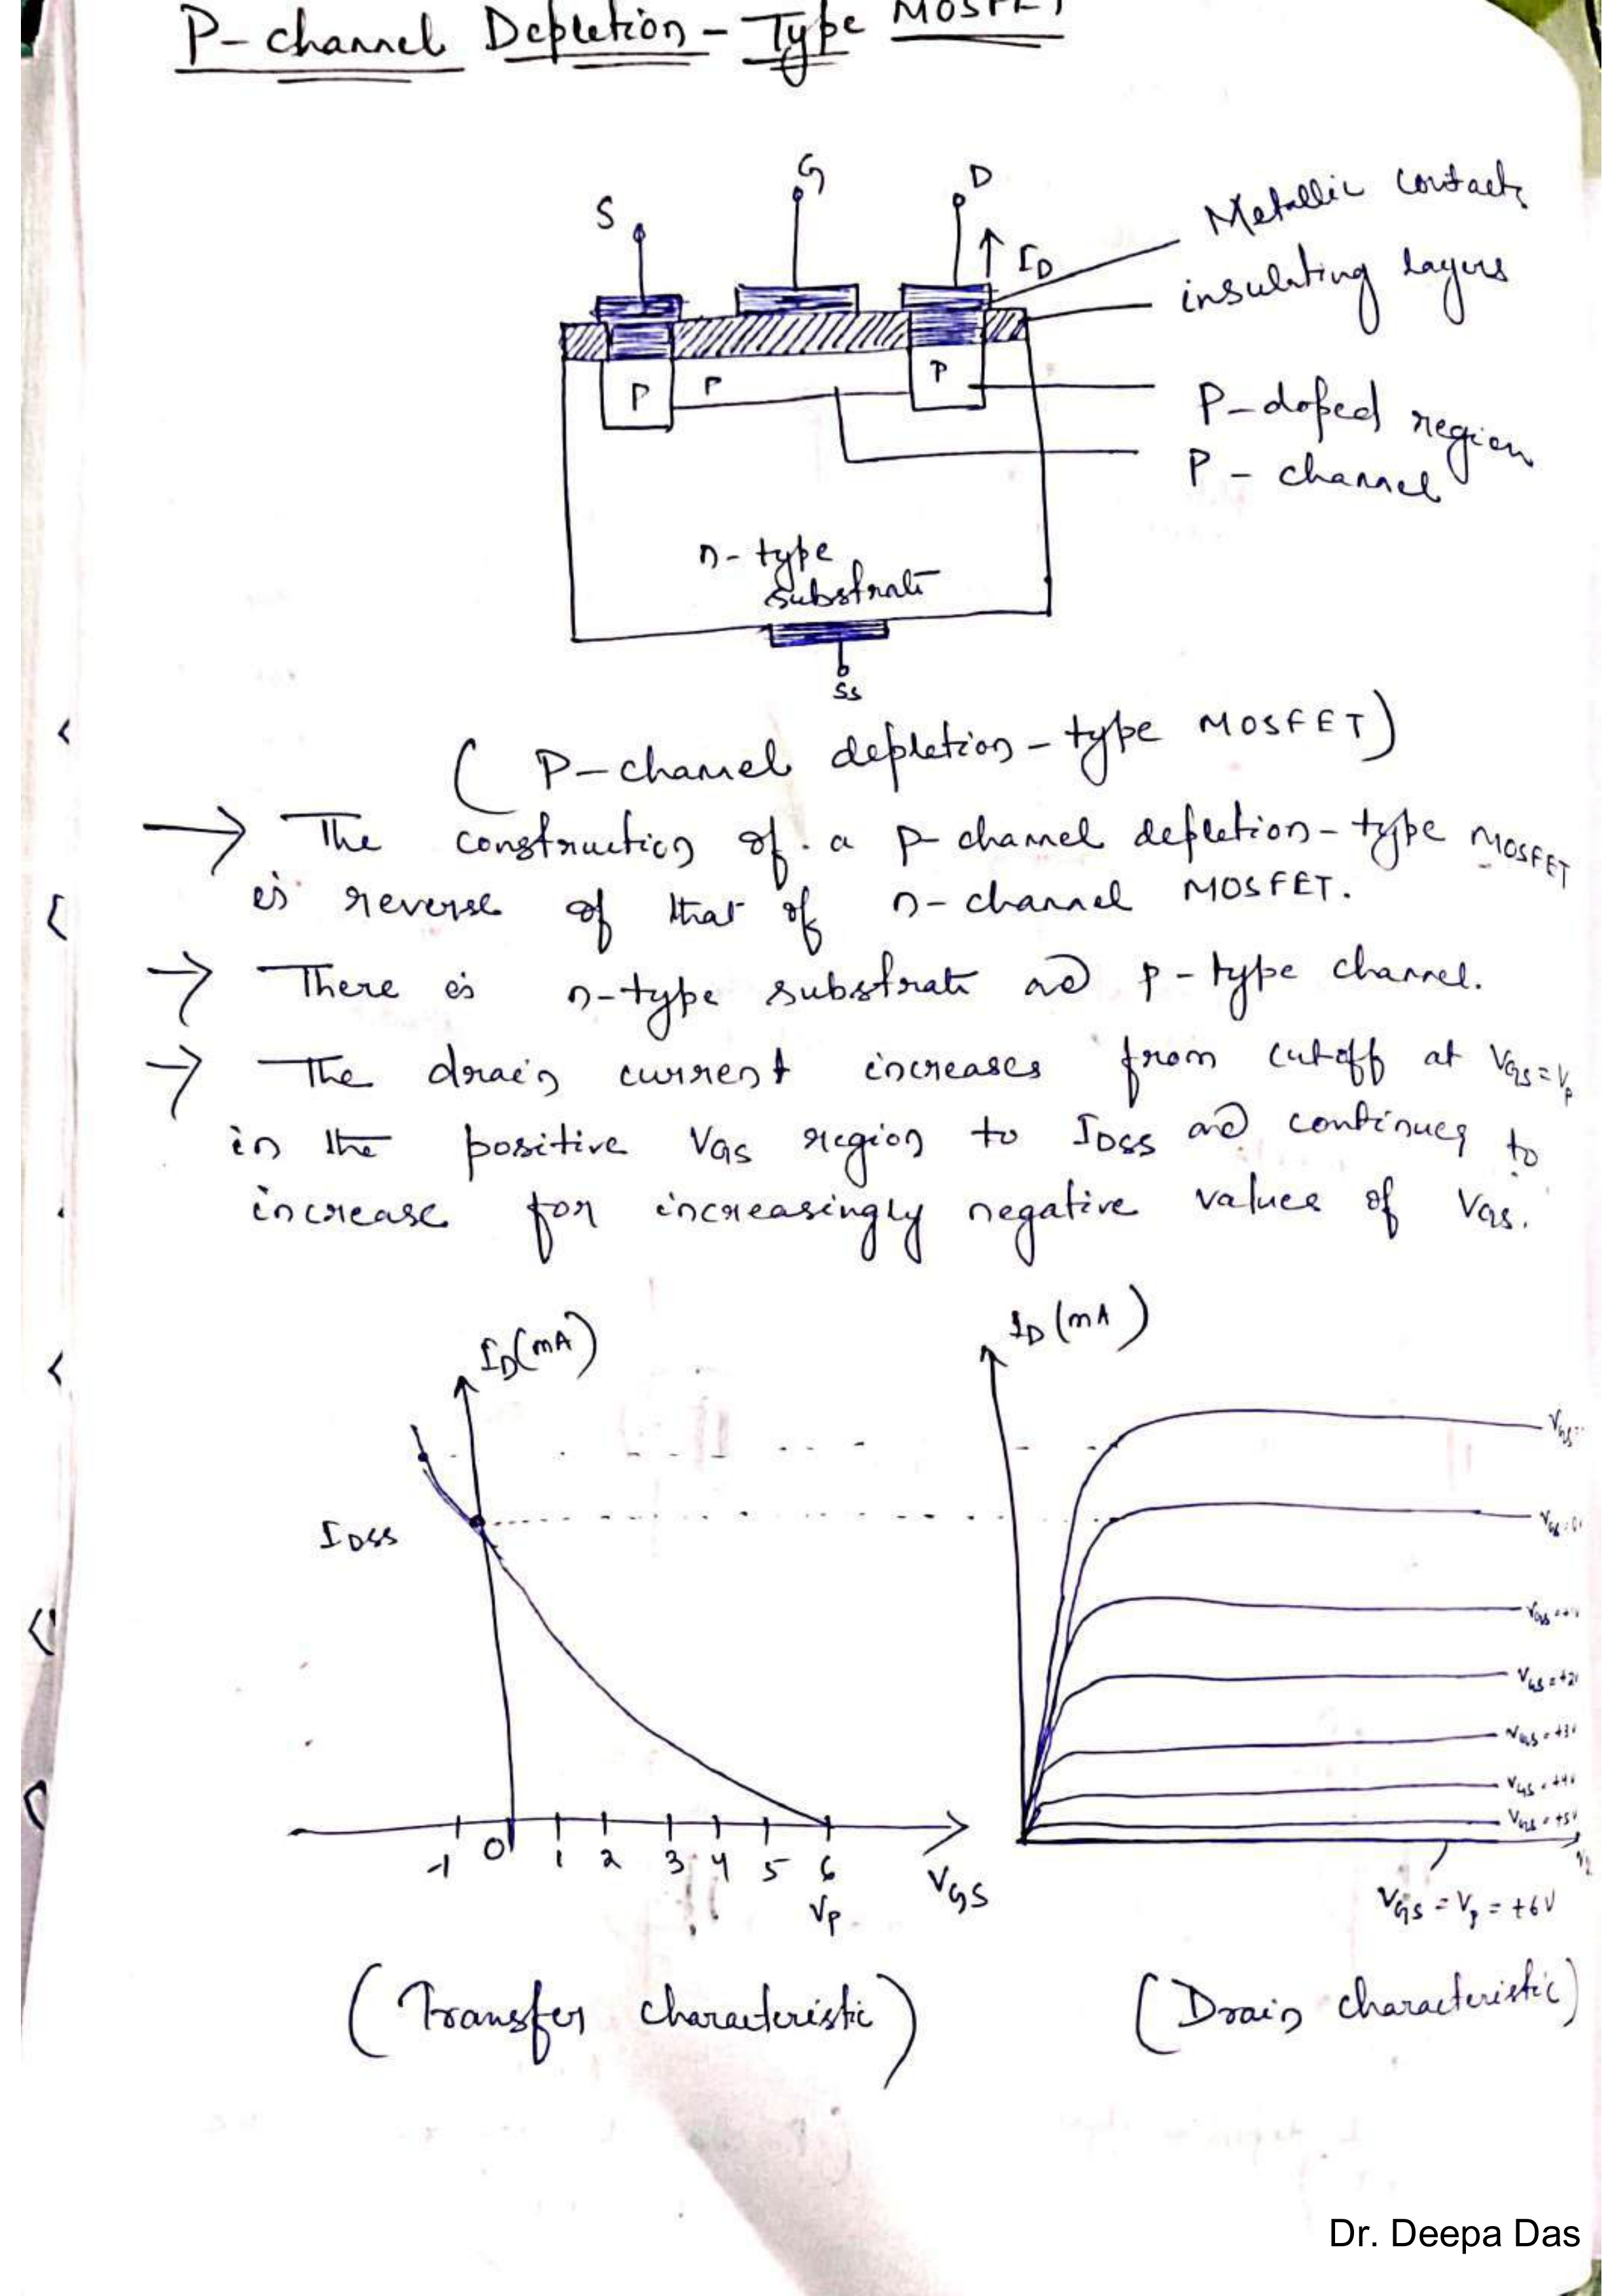 P-channel Depletion-Type MOSFET
S
G
D
ID
Metallic contacts
insulating layers
P
P
P
P-doped region
P-channel
n-type
substrate
SS
(P-channel depletion-type MOSFET)
→ The construction of a p-channel depletion-type MOSFET
is reverse of that of n-channel MOSFET.
→ There is n-type substrate and p-type channel.
→ The drain current increases from cutoff at VGS=Vp
in the positive VGS region to IDSS and continues to
increase for increasingly negative values of VGS.
ID(mA)
ID(mA)
VGS=
IDSS
VGS=0
VGS=+1
VGS=+2V
VGS=+3V
VGS=+4V
VGS=+5V
-1 0 1 2 3 4 5 6
VP
VGS
VGS=Vp=+6V
(Transfer characteristic)
(Drain characteristic)
Dr. Deepa Das